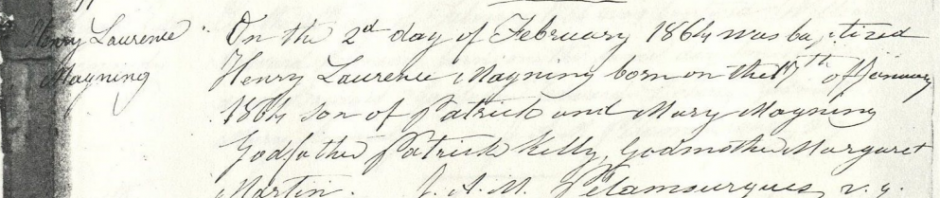 Henry Laurence
Mayning
On the 2nd day of February 1864 was baptized
Henry Laurence Mayning born on the 17th of January
1864 son of Patrick and Mary Mayning
Godfather Patrick Kelly, Godmother Margaret
Martin. J. A. M. Pelamourgues, v. g.